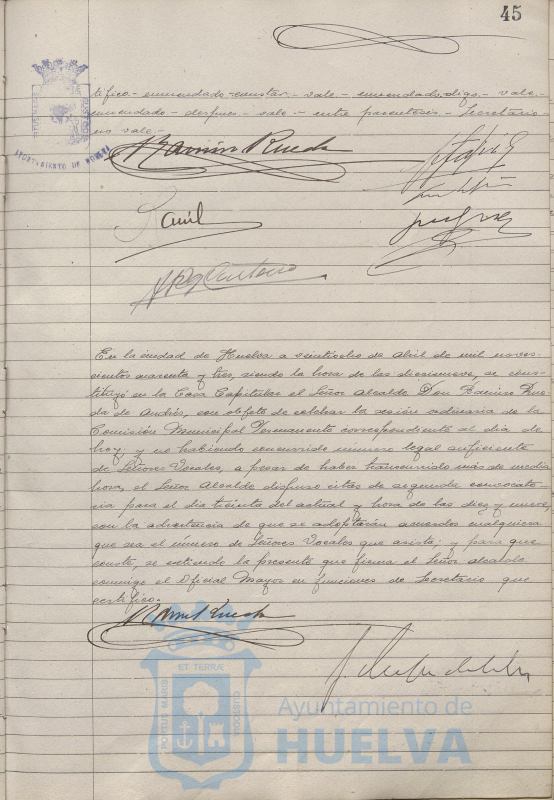 45
tifico.- enmendado-constar.- vale.- enmendado.digo.- vale.-
enmendado.- despues.- vale.- entre parentesis.- Secretario
no vale.-
AYUNTAMIENTO DE HUELVA
Ramón Rueda
En la ciudad de Huelva a veintiocho de Abril de mil noves-
cientos cuarenta y tres, siendo la hora de las diecinueve, se cons-
tituyó en la Casa Capitular el Señor Alcalde Don Ramiro Rue
da de Andrés, con objeto de celebrar la sesión ordinaria de la
Comisión Municipal Permanente correspondiente al dia de
hoy, y no habiendo concurrido numero legal suficiente
de Señores Vocales, a pesar de haber transcurrido más de media
hora, el Señor Alcalde dispuso citar de segunda convocato-
ria para el dia treinta del actual y hora de las diez y nueve,
con la advertencia de que se adoptarán acuerdos cualquiera
que sea el número de Señores Vocales que asista; y para que
conste, se extiende la presente que firma el Señor alcalde
conmigo el Oficial Mayor en funciones de Secretario que
certifico.-
Rueda
PORTUS MARIS ET TERRÆ CUSTODIA
Ayuntamiento de
HUELVA